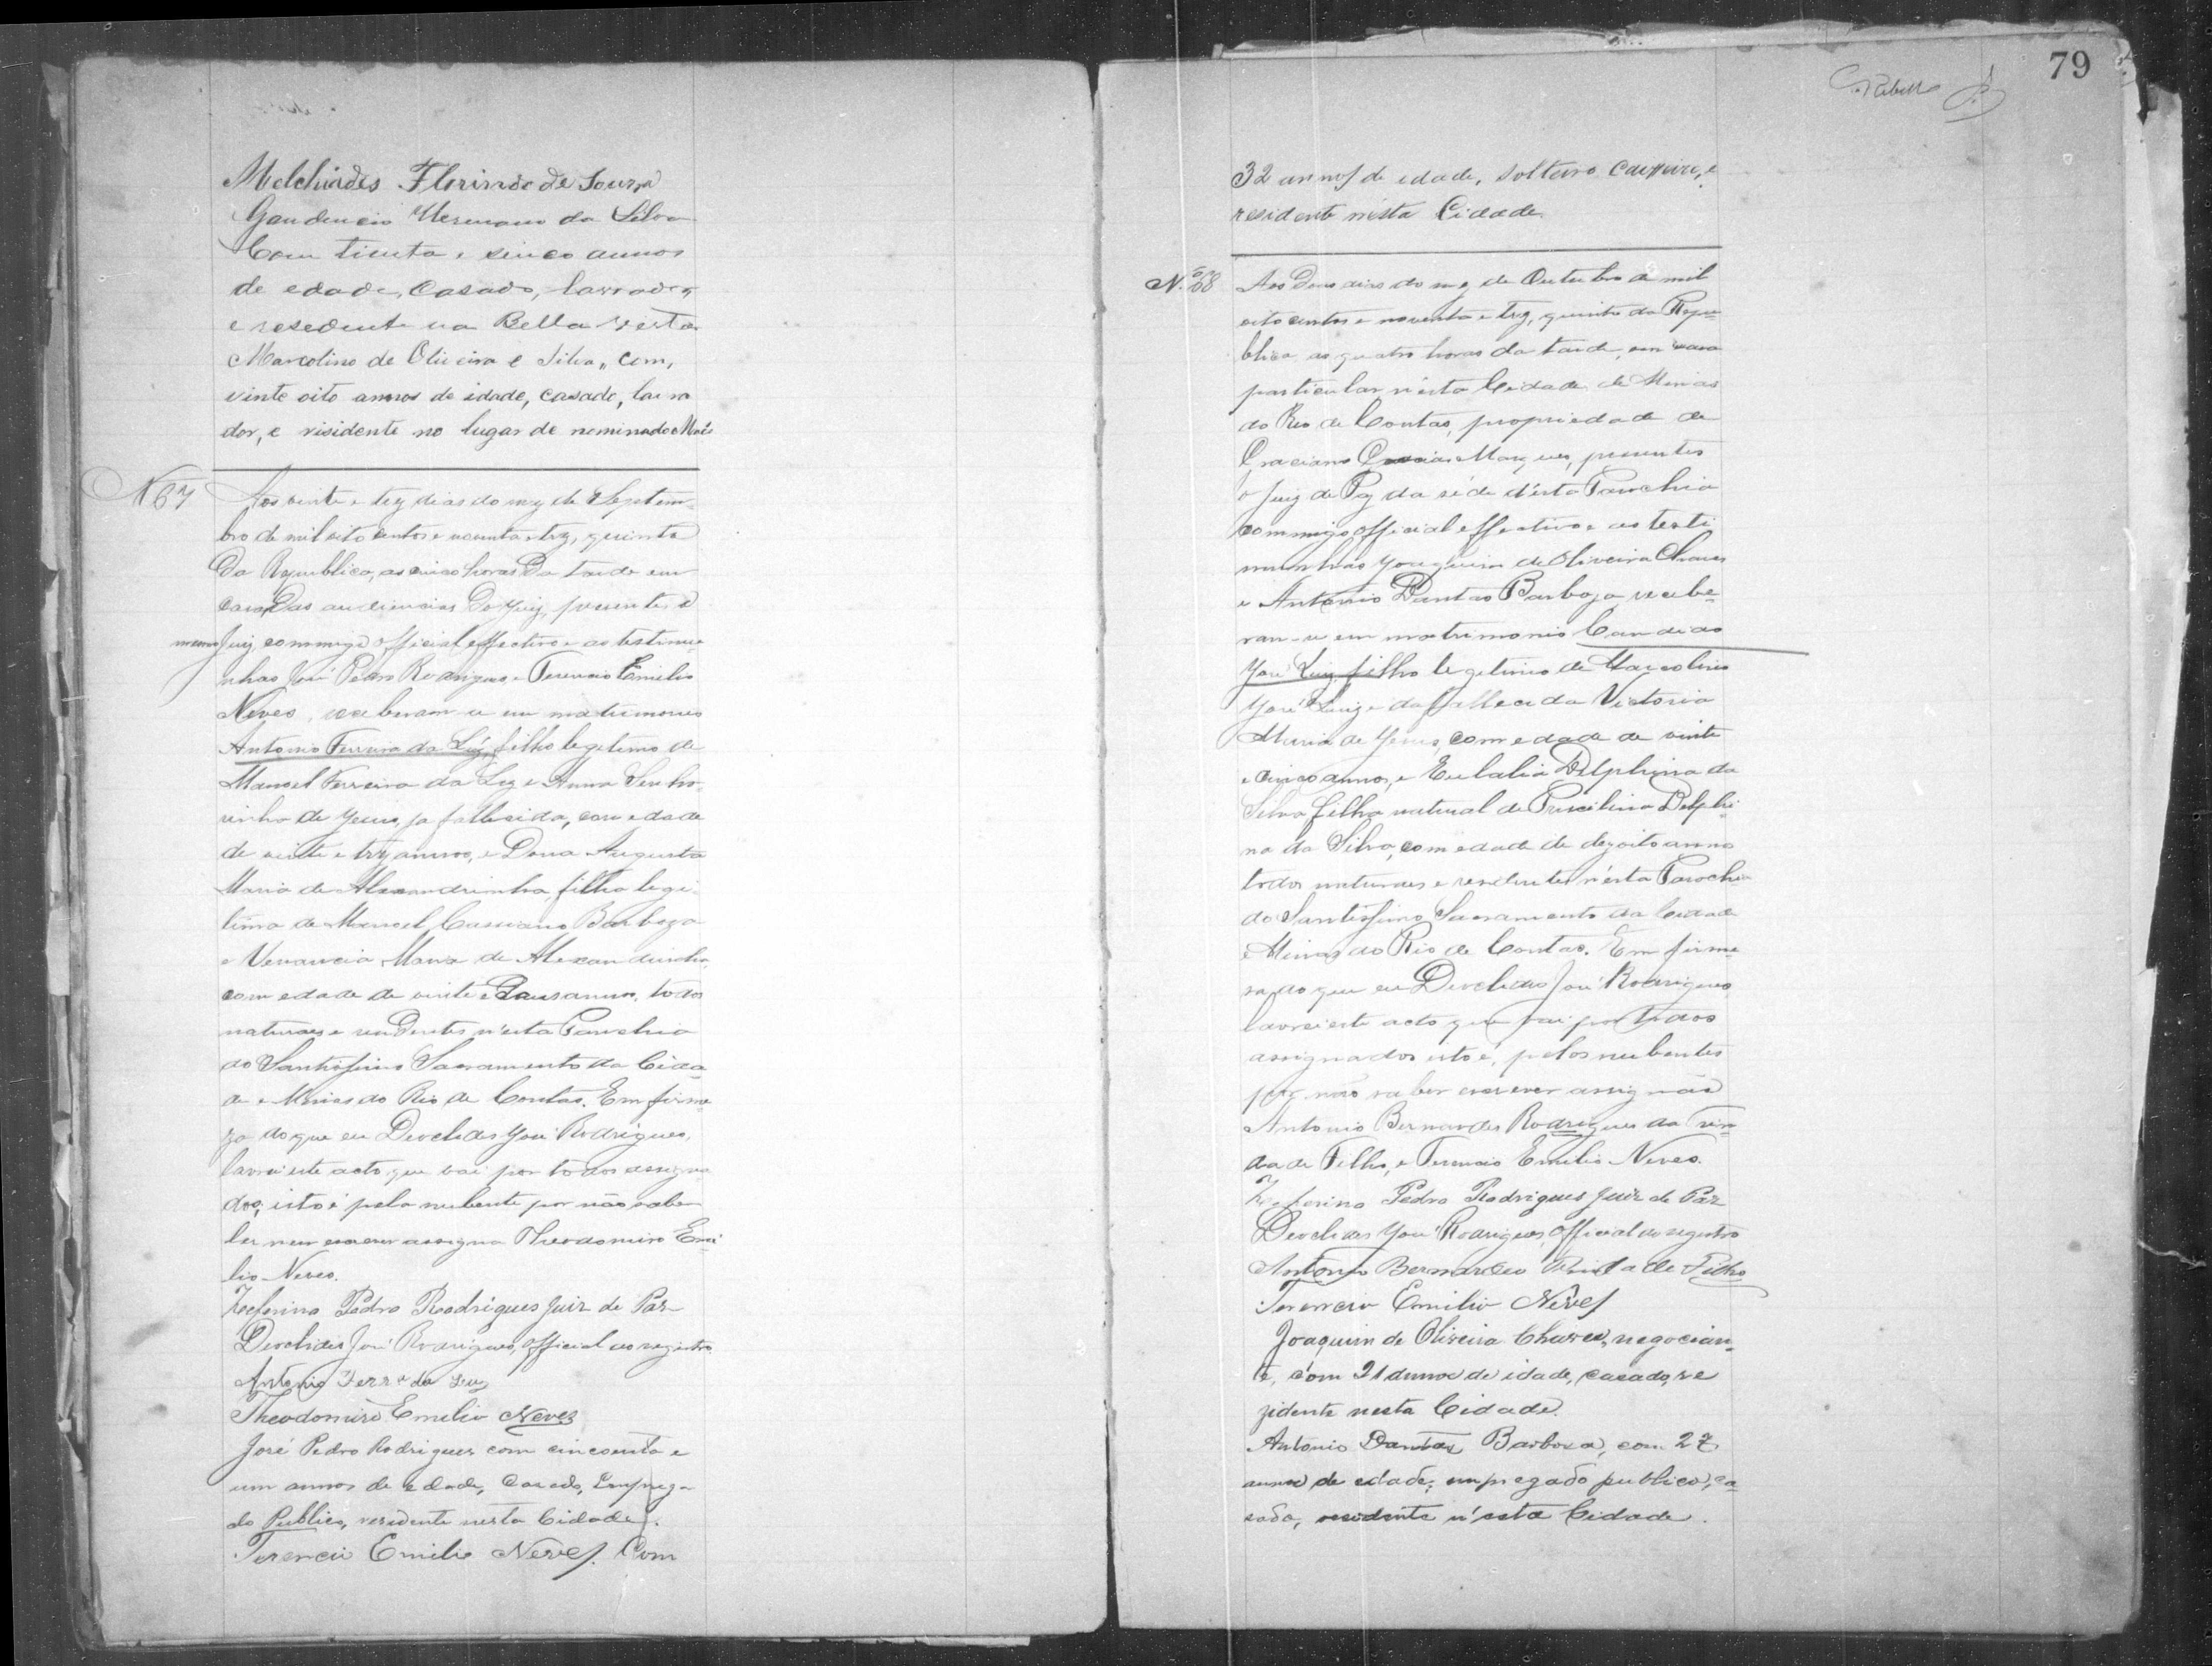 Melchiades Florindo de Souza
Gaudencio Hermano da Silva
Com trinta e sinco annos
de edade, Casado, lavrador,
e resedente na Bella vista
Marcolino de Oliveira e Silva, com,
vinte oito annos de idade, casado, lavra
dor, e risidente no lugar de nominado
N 67
Aos vinte e trez dias do mez de Septem-
bro de mil oito centos e noventa e trez, quinto
Da Republica, as cinco horas Da tarde em
casa Das audiencias Do Juiz, presente o
mesmo Juiz, commigo official effectivo e as testimu-
nhas José Pedro Rodrigues e Terencio Emilio
Neves, receberam-se em matrimonio
Antonio Ferreira da Luz, filho legitimo de
Manoel Ferreira da Luz e Anna Senho-
rinha de Jesus, ja fallesida, com edade
de vinte e trez annos, e Dona Augusta
Maria de Alexandrinha, filha legi-
tima de Manoel Cassiano Barboza
e Venancia Maria de Alexandrinha,
com edade de vinte e Dous annos, todos
naturaes e residentes n'esta Parochia
do Santissimo Sacramento da Cida-
de e Minas do Rio de Contas. Em firme-
za do que eu Deoclides José Rodrigues,
lavrei este acto, que vai por todos assigna-
dos, isto é pela nubente por não saber
ler nem escrever assigna Theodomiro Emi-
lio Neves.
Zeferino Pedro Rodrigues Juiz de Paz
Deoclides José Rodrigues, Official do registro
Antonio Ferrª da Luz
Theodomiro Emilio Neves
José Pedro Rodrigues com cincoenta e
um annos de edade, Casado, Emprega-
do Publico, residente nesta Cidade.
Terencio Emilio Neves. Com
79
32 annos de edade, solteiro caixeiro, e
residente nésta Cidade
N.º 68
Aos Dous dias do mez de Outubro de mil
oito centos e noventa e trez, quinto da Repu-
blica, as quatro horas da tarde, em casa
particular n'esta Cidade de Minas
do Rio de Contas, propriedade de
Graciano Marques, presentes
o Juiz de Paz da séde d'esta Parochia
commigo official effectivo e as testi
munhas Joaquim de Oliveira Chaves
e Antonio Dantas Barboza, recebe-
ram-se em matrimonio Candido
José Luiz, filho legitimo de Marcolino
José Luiz e da fallecida Victoria
Maria de Jesus, com edade de vinte
e cinco annos, e Eulalia Delphina da
Silva filha natural de Priscilina Delphi-
na da Silva, com edade de dezoito annos
todos naturaes e residentes n'esta Parochia
do Santissimo Sacramento da Cidade
e Minas do Rio de Contas. Em firme-
za do que eu Deoclides José Rodrigues
lavrei este acto que vai por todos
assignados isto é, pelos nubentes
por não saber escrever assignão
Antonio Bernardes Rodrigues da Trin-
dade Filho, e Terencio Emilio Neves.
Zeferino Pedro Rodrigues Juiz de Paz
Deoclides José Rodrigues, Official do registro
Antonio Bernardes Filho
Terencio Emilio Neves
Joaquim de Oliveira Chaves, negocian-
te, com 21 annos de idade, casado, re
zidente nesta Cidade.
Antonio Dantas Barbosa, com 27
annos de edade, empregado publico, ca-
sado, residente n'esta Cidade.